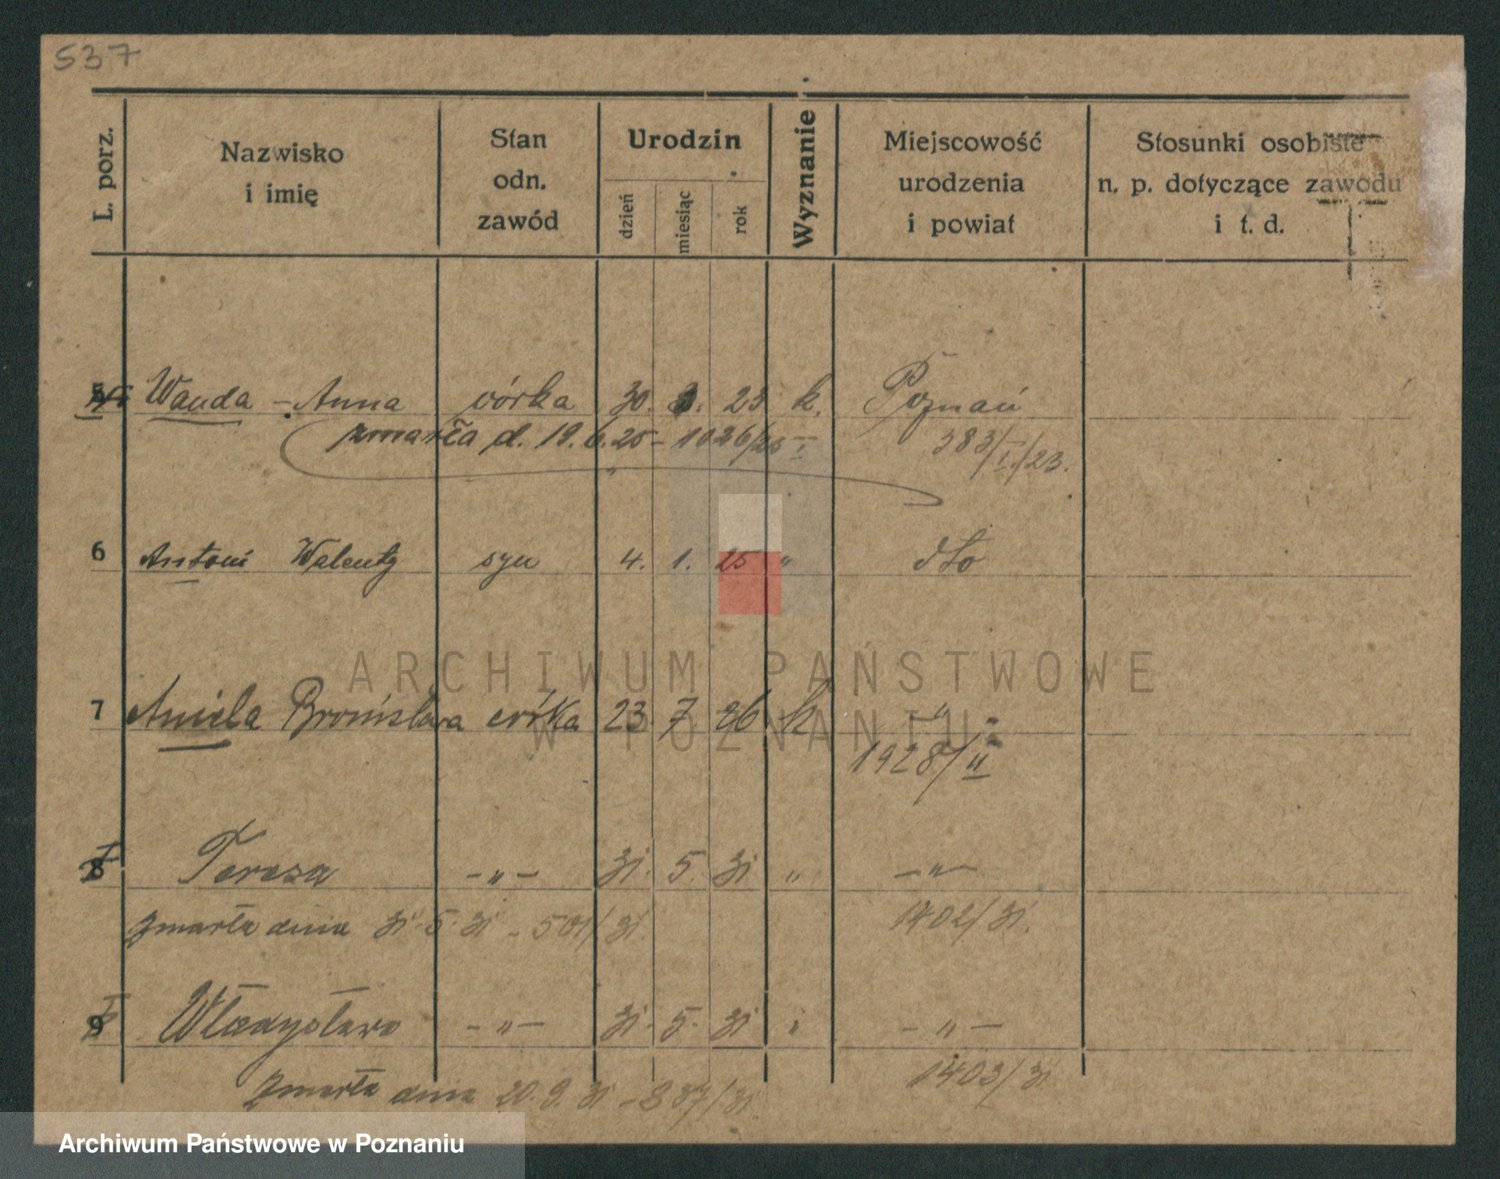 537
L. porz.
Nazwisko
i imię
Stan
odn.
zawód
Urodzin
dzień
miesiąc
rok
Wyznanie
Miejscowość
urodzenia
i powiat
Stosunki osobiste
n. p. dotyczące zawodu
i t. d.
5 Wanda - Anna córka 30. 3. 23 k. Poznań
zmarła d. 19. 6. 25 - 1026/25 I
383/I/23.
6 Antoni Walenty syn 4. 1. 25 " dto
ARCHIWUM PAŃSTWOWE
W POZNANIU
7 Aniela Bronisława córka 23 7 26 k - " -
1928/II
8 Teresa - " - 31. 5 31 " - " -
zmarła dnia 31. 5. 31 - 501/31.
1402/31.
9 Władysława - " - 31. 5. 31 " - " -
zmarła dnia 20. 9. 31 - 887/31.
1403/31
Archiwum Państwowe w Poznaniu